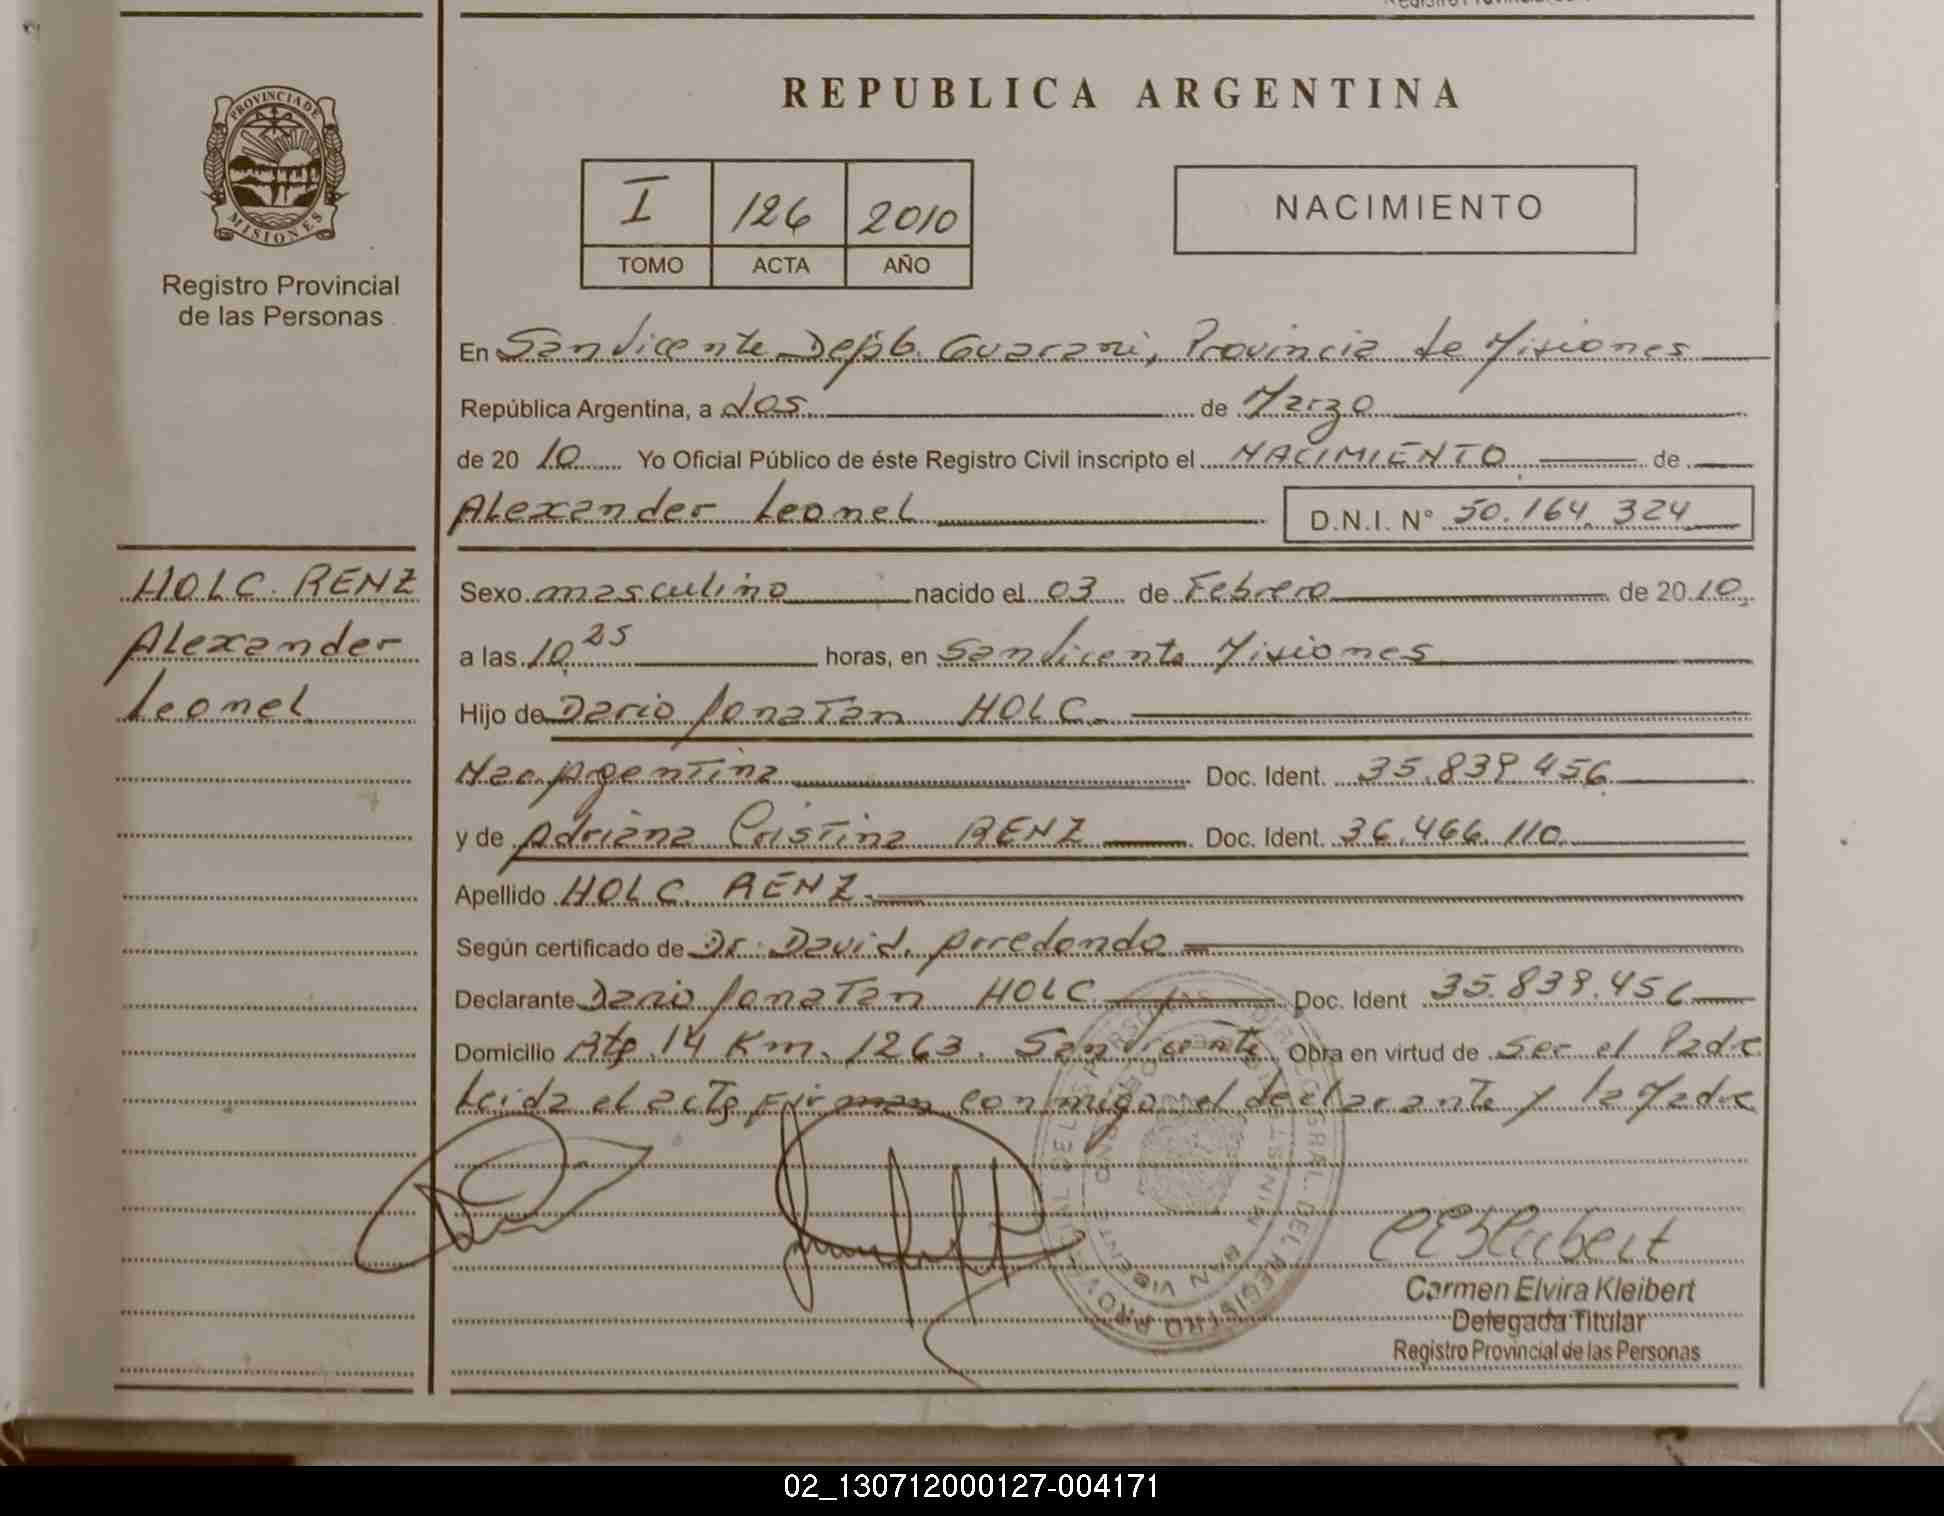 REPUBLICA ARGENTINA
PROVINCIA DE
MISIONES
Registro Provincial
de las Personas
I 126 2010
TOMO ACTA AÑO
NACIMIENTO
En San Vicente Depto. Guarani, Provincia de Misiones
República Argentina, a dos de Marzo
de 20 10 Yo Oficial Público de éste Registro Civil inscripto el NACIMIENTO de
Alexander Leonel D.N.I. N° 50.164.324
HOLC RENZ
Alexander
Leonel
Sexo masculino nacido el 03 de Febrero de 20 10,
a las 10,25 horas, en San Vicente Misiones
Hijo de Dario Jonatan HOLC.
Nac Argentina Doc. Ident. 35.839.456
y de Adriana Cristina RENZ Doc. Ident. 36.466.110
Apellido HOLC RENZ.
Según certificado de Dr. David Arredondo
Declarante Dario Jonatan HOLC Doc. Ident 35.839.456
Domicilio 14 Km. 1263. San Vicente Obra en virtud de ser el Padre
Leida el acta firman conmigo el declarante y la Madre
Carmen Elvira Kleibert
Delegada Titular
Registro Provincial de las Personas
02_130712000127-004171